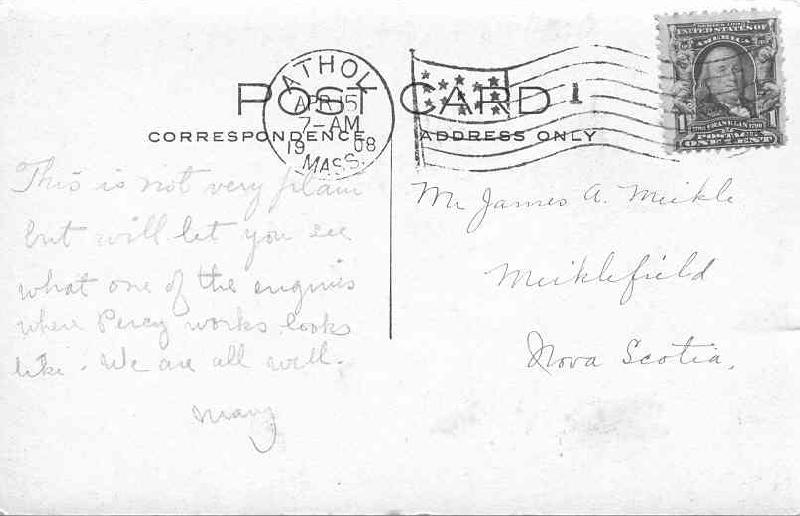 POST CARD
CORRESPONDENCE
ADDRESS ONLY
ATHOL
APR 15
7-AM
1908
MASS.
1
UNITED STATES OF
AMERICA
FRANKLIN
ONE CENT
This is not very plain
but will let you see
what one of the engines
where Percy works looks
like. We are all well.
Mary
Mr James A. Meikle
Meiklefield
Nova Scotia.